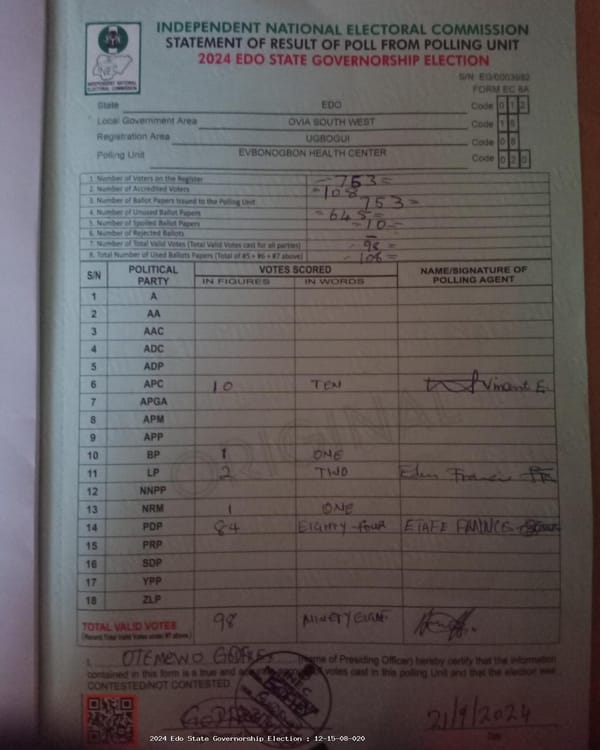 INDEPENDENT NATIONAL ELECTORAL COMMISSION
STATEMENT OF RESULT OF POLL FROM POLLING UNIT
2024 EDO STATE GOVERNORSHIP ELECTION
INDEPENDENT NATIONAL ELECTORAL COMMISSION
FORM EC 8A
State EDO Code 0 1 2
Local Government Area OVIA SOUTH WEST Code 1 5
Registration Area UGBOGUI Code 0 8
Polling Unit EVBONOGBON HEALTH CENTER Code 0 2 0
1. Number of Voters on the Register 753
2. Number of Accredited Voters 108
3. Number of Ballot Papers Issued to the Polling Unit 753
4. Number of Unused Ballot Papers 645
5. Number of Spoiled Ballot Papers 10
6. Number of Rejected Ballots –
7. Number of Total Valid Votes (Total Valid Votes cast for all parties) 98
8. Total Number of Used Ballots Papers (Total of #5 + #6 + #7 above) 108
S/N POLITICAL PARTY VOTES SCORED NAME/SIGNATURE OF POLLING AGENT
IN FIGURES IN WORDS
1 A
2 AA
3 AAC
4 ADC
5 ADP
6 APC 10 TEN Vincent E.
7 APGA
8 APM
9 APP
10 BP 1 ONE
11 LP 2 TWO Francis
12 NNPP
13 NRM 1 ONE
14 PDP 84 EIGHTY-four
15 PRP
16 SDP
17 YPP
18 ZLP
TOTAL VALID VOTES 98 NINETY EIGHT
(Record Total Valid Votes under #7 above)
ORIGINAL
I, OTEMEWO (Name of Presiding Officer) hereby certify that the information
contained in this form is a true and votes cast in this polling Unit and that the election was
CONTESTED/NOT CONTESTED
21/9/2024
Date
2024 Edo State Governorship Election : 12-15-08-020